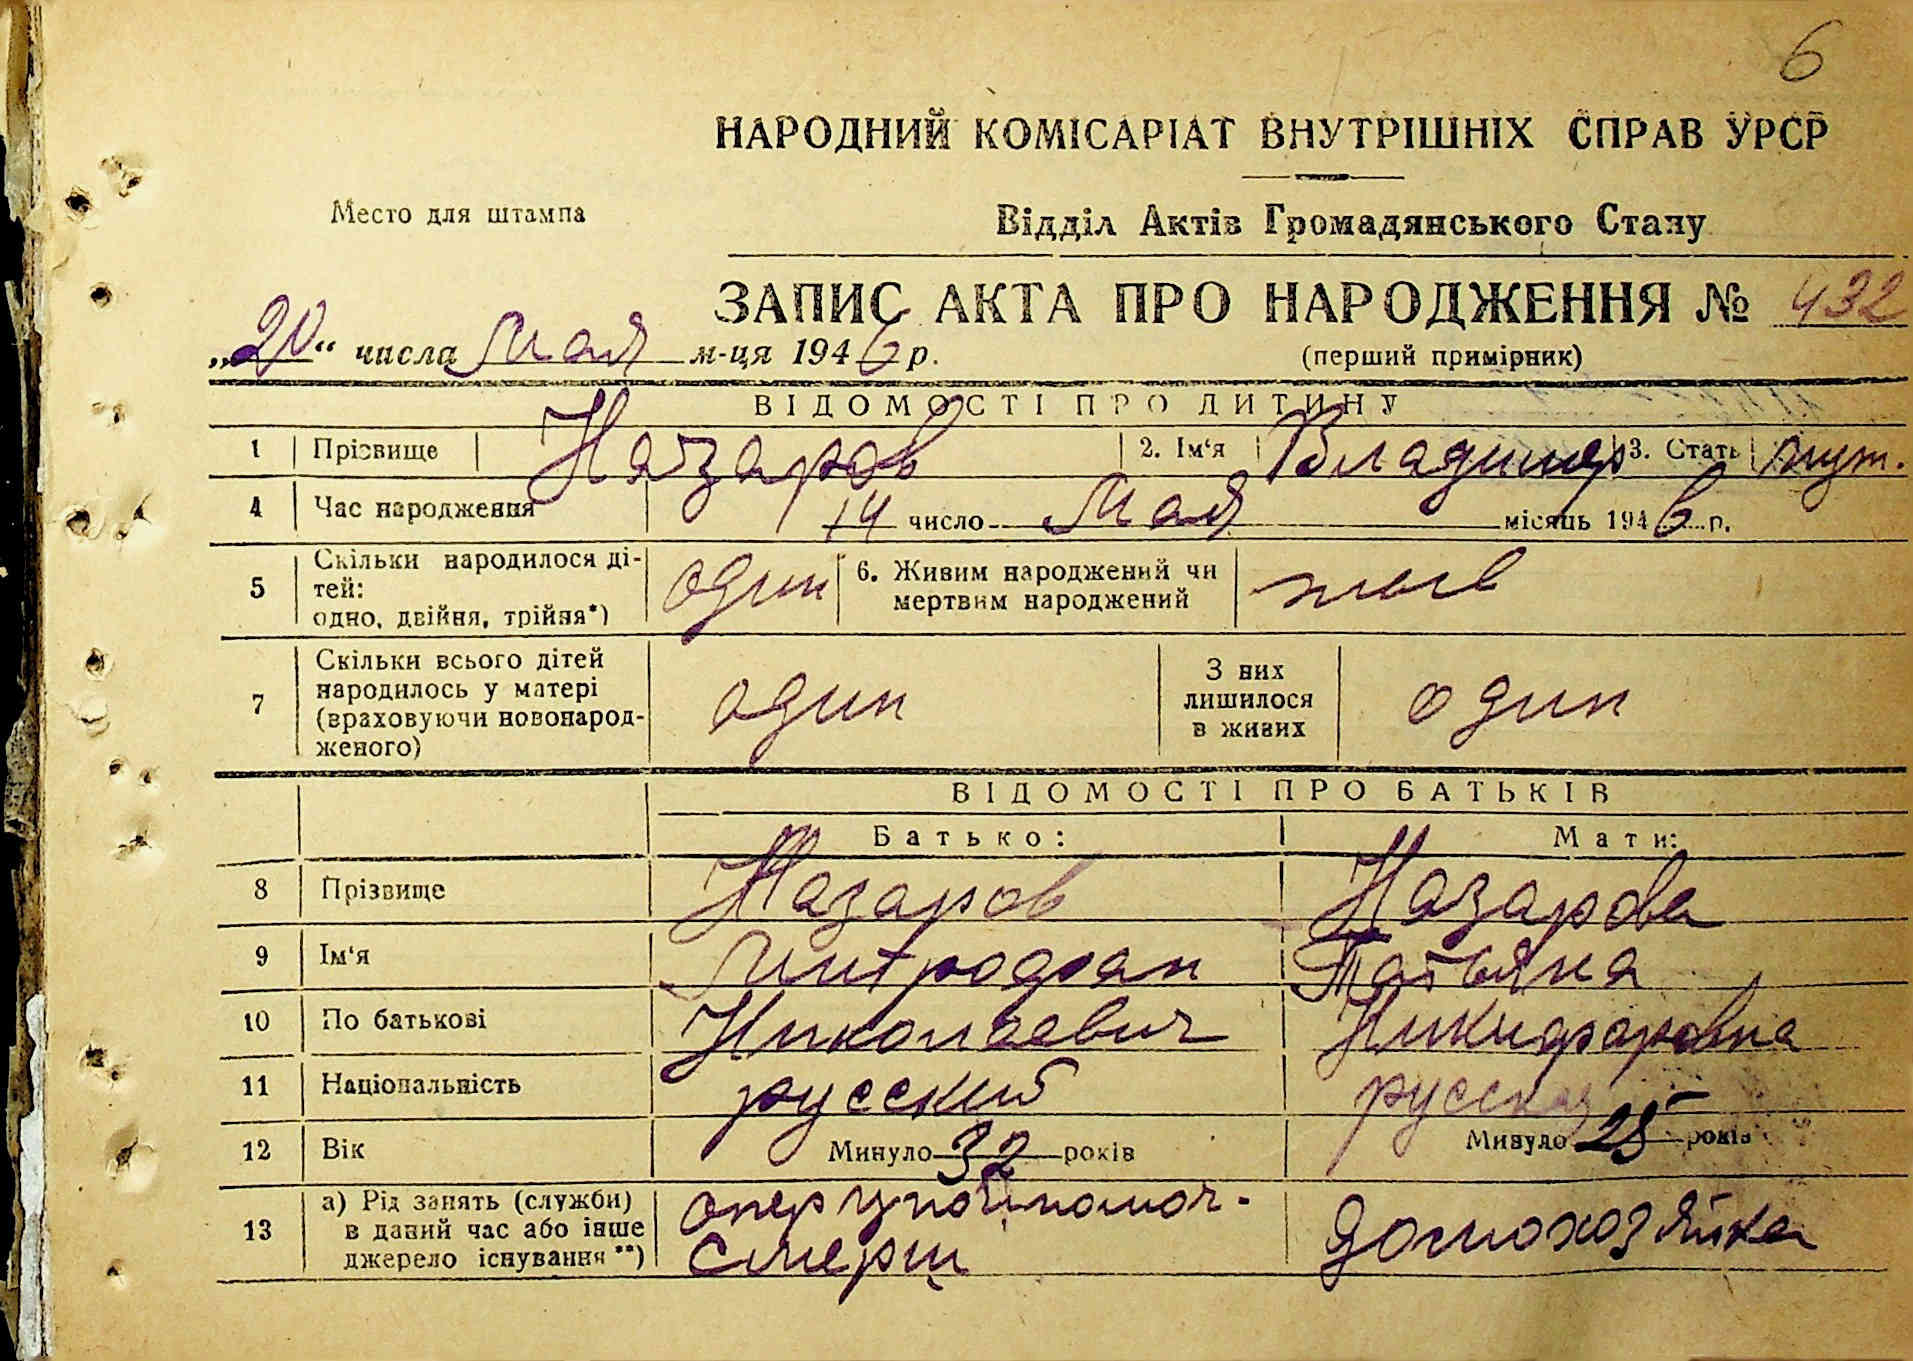 6
НАРОДНИЙ КОМІСАРІАТ ВНУТРІШНІХ СПРАВ УРСР
Место для штампа
Відділ Актів Громадянського Стану
ЗАПИС АКТА ПРО НАРОДЖЕННЯ № 432
„20“ числа мая м-ця 1946 р.
(перший примірник)
ВІДОМОСТІ ПРО ДИТИНУ
1 Прізвище Назаров 2. Ім‘я Владимир 3. Стать муж.
4 Час народження 14 число мая місяць 1946 р.
5 Скільки народилося ді-
тей:
одно, двійня, трійня*)
один
6. Живим народжений чи
мертвим народжений
жив
7 Скільки всього дітей
народилось у матері
(враховуючи новонарод-
женого)
один
З них
лишилося
в живих
один
ВІДОМОСТІ ПРО БАТЬКІВ
Батько: Мати:
8 Прізвище Назаров Назарова
9 Ім‘я Митрофан Татьяна
10 По батькові Николаевич Никифоровна
11 Національність русский русская
12 Вік Минуло 32 років Минуло 25 років
13 а) Рід занять (служби)
в даний час або інше
джерело існування **)
оперуполномоч.
Смерш
домохозяйка